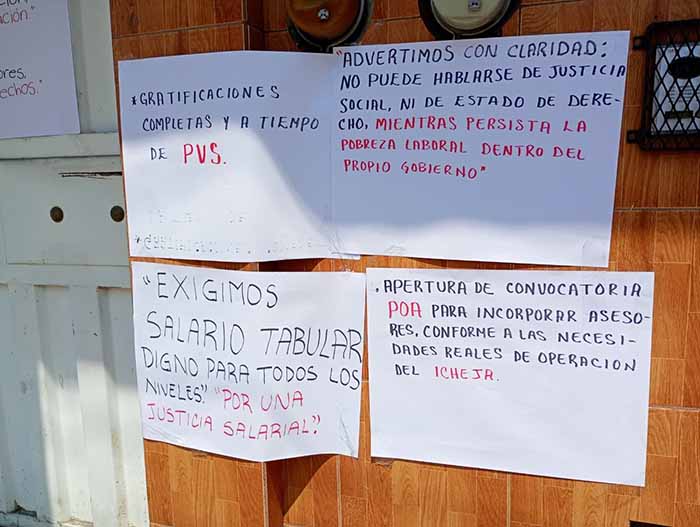 ción."
ores,
echos."
*GRATIFICACIONES
COMPLETAS Y A TIEMPO
DE PVS.
"ADVERTIMOS CON CLARIDAD:
NO PUEDE HABLARSE DE JUSTICIA
SOCIAL, NI DE ESTADO DE DERE-
CHO, MIENTRAS PERSISTA LA
POBREZA LABORAL DENTRO DEL
PROPIO GOBIERNO"
"EXIGIMOS
SALARIO TABULAR
DIGNO PARA TODOS LOS
NIVELES." "POR UNA
JUSTICIA SALARIAL".
. APERTURA DE CONVOCATORIA
POA PARA INCORPORAR ASESO-
RES, CONFORME A LAS NECESI-
DADES REALES DE OPERACION
DEL ICHEJA.